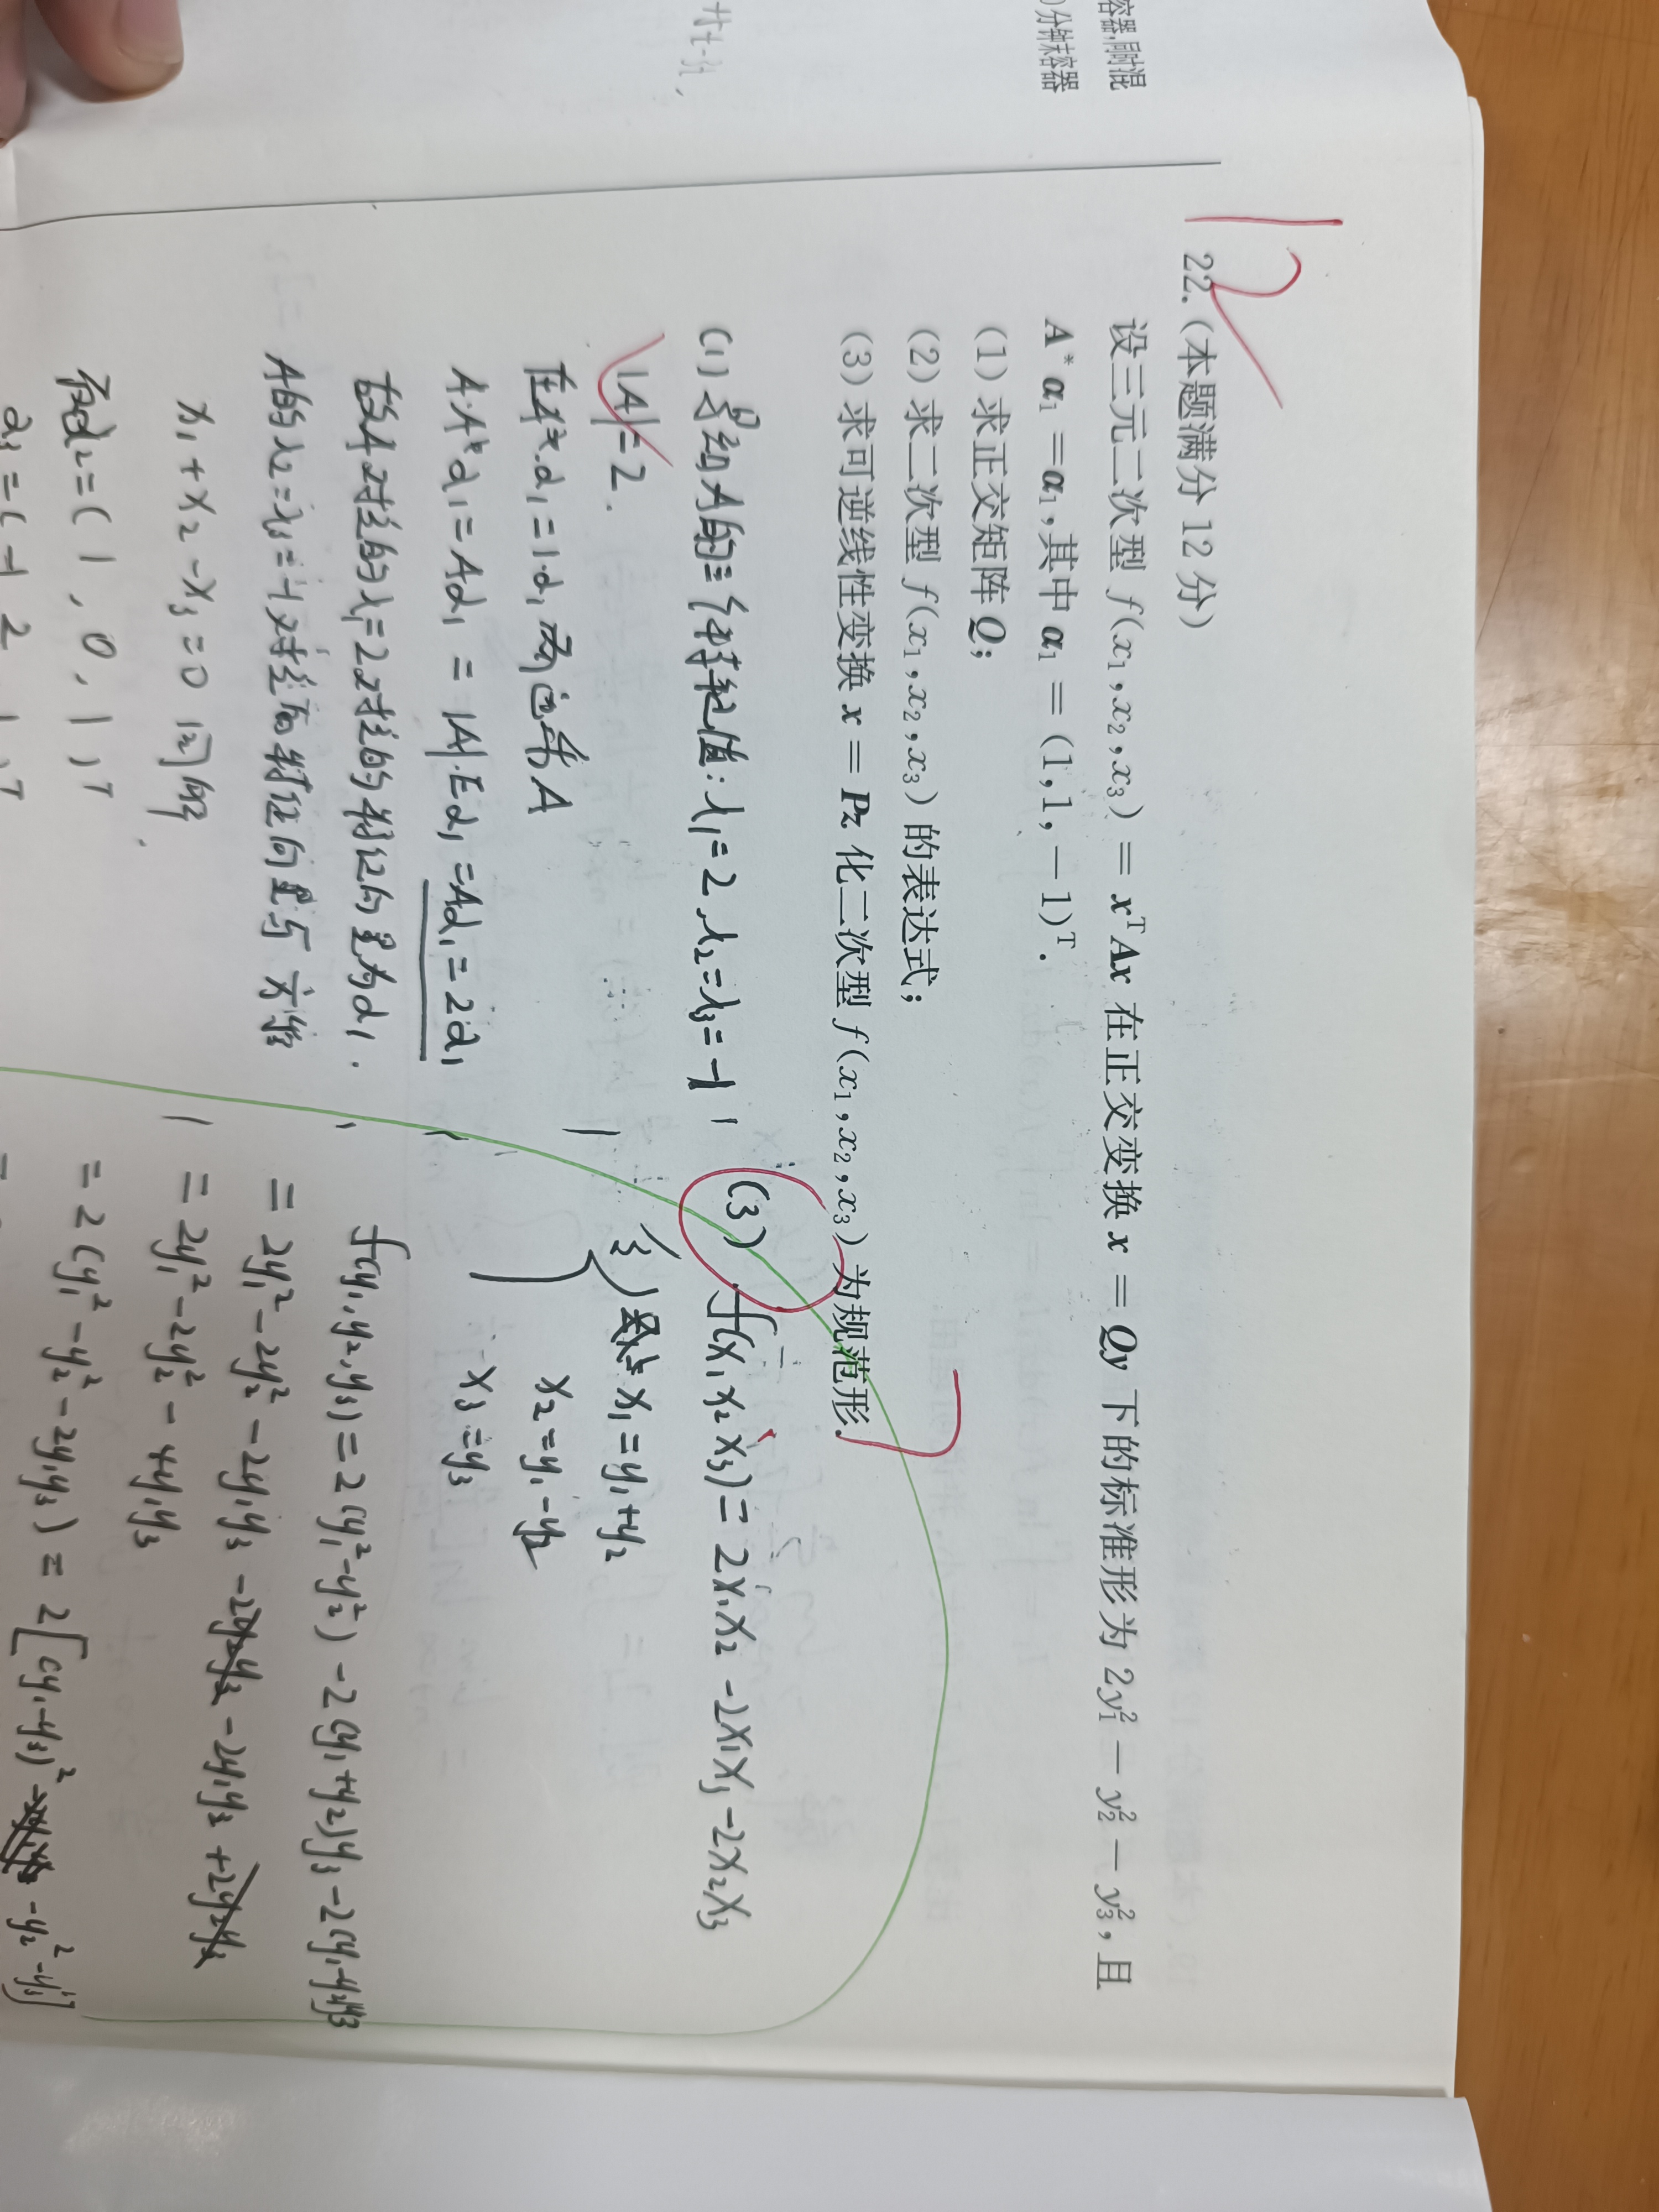 容器,同时混
)分钟末容器
12
22.(本题满分 12 分)
设三元二次型 f(x₁,x₂,x₃) = xᵀAx 在正交变换 x = Qy 下的标准形为 2y₁² − y₂² − y₃²,且
A*α₁ = α₁,其中 α₁ = (1,1,−1)ᵀ.
(1)求正交矩阵 Q;
(2)求二次型 f(x₁,x₂,x₃)的表达式;
(3)求可逆线性变换 x = Pz 化二次型 f(x₁,x₂,x₃)为规范形.
(1) 易知A的三个特征值: λ₁=2, λ₂=λ₃=-1
|A|=2.
在A*·α₁=1·α₁ 两边乘A
A·A*α₁=Aα₁ = |A|·Eα₁ =Aα₁=2α₁
故A对应的λ₁=2对应的特征向量为α₁.
A的λ₂=λ₃=-1对应的特征向量与
x₁+x₂-x₃=0 同解
α₂=(1,0,1)ᵀ
α₃=(-1 2 1)ᵀ
(3) f(x₁x₂x₃)=2x₁x₂-2x₁x₃-2x₂x₃
x₁=y₁+y₂
x₂=y₁-y₂
x₃=y₃
f(y₁,y₂,y₃)=2(y₁²-y₂²)-2(y₁+y₂)y₃-2(y₁-y₂)y₃
=2y₁²-2y₂²-2y₁y₃-2y₂y₃-2y₁y₃+2y₂y₃
=2y₁²-2y₂²-4y₁y₃
=2(y₁²-y₂²-2y₁y₃)=2[(y₁-y₃)²-y₂²-y₃²]